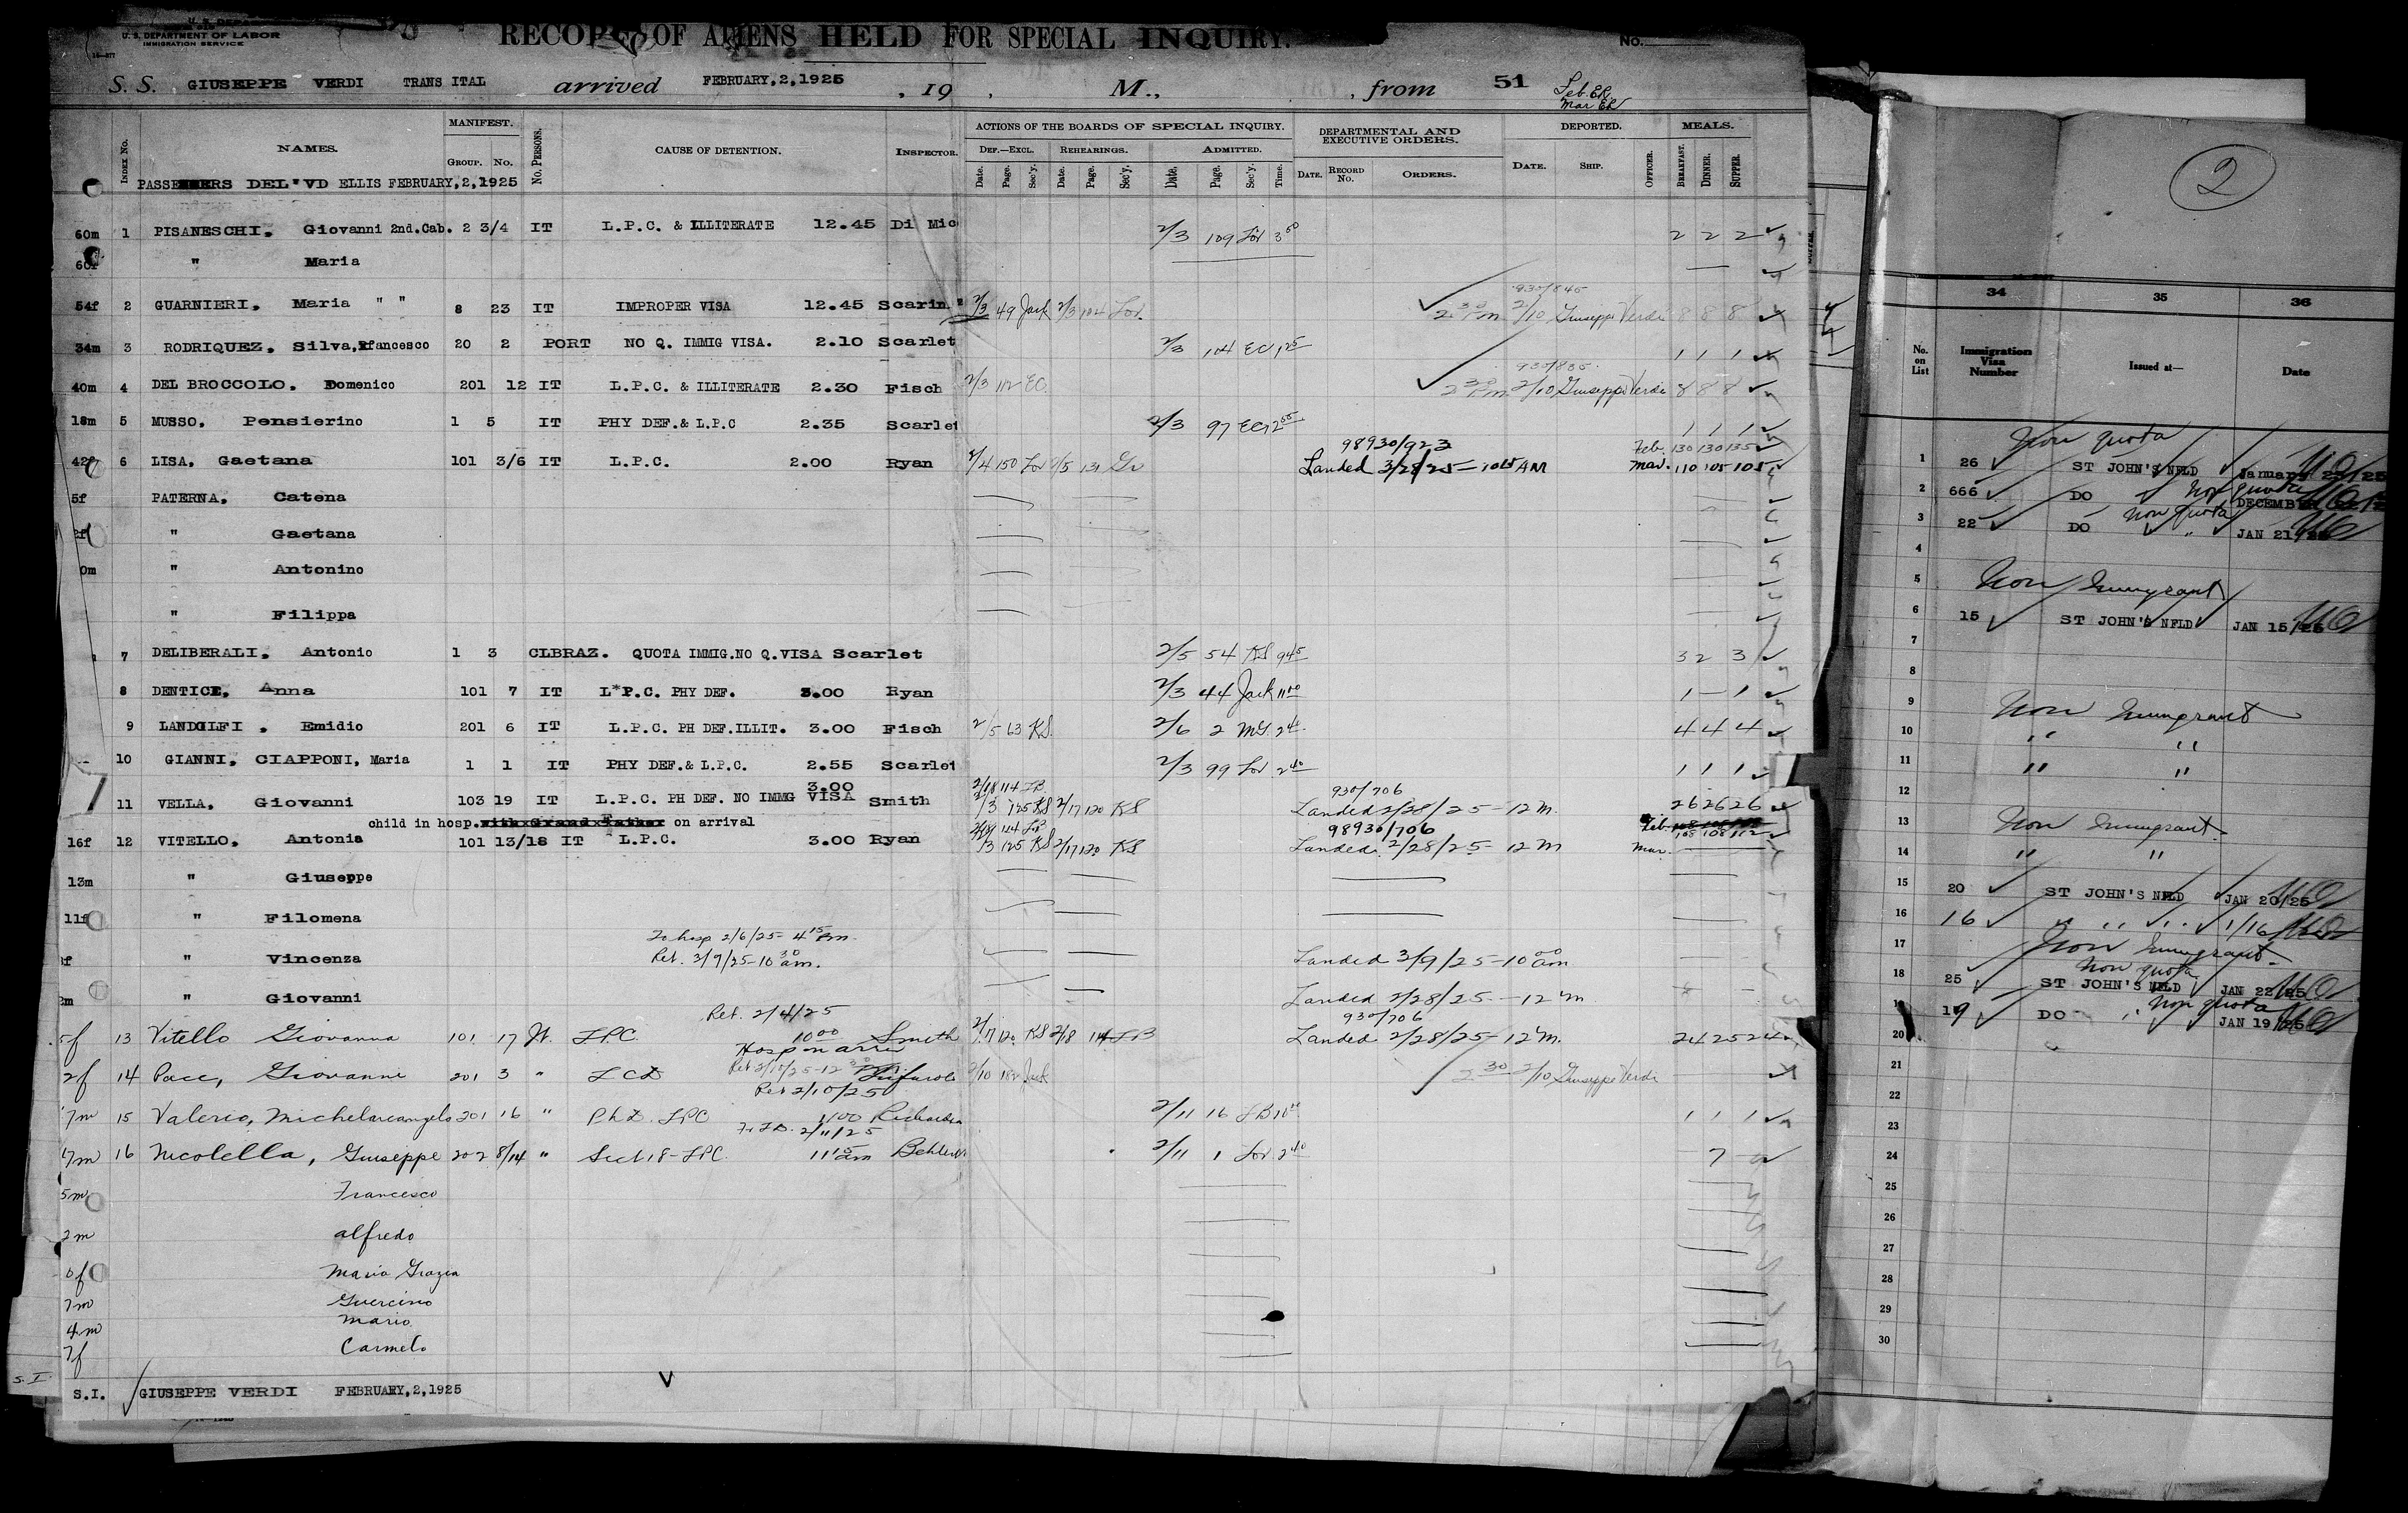 U. S. DEPARTMENT OF LABOR
IMMIGRATION SERVICE
RECORD OF ALIENS HELD FOR SPECIAL INQUIRY.
No.
S. S. GIUSEPPE VERDI TRANS ITAL arrived FEBRUARY,2,1925 , 19 , M., , from 51 Feb. ER
Mar ER
Index No. NAMES. MANIFEST. GROUP. No. No. PERSONS. CAUSE OF DETENTION. INSPECTOR. ACTIONS OF THE BOARDS OF SPECIAL INQUIRY. DEPARTMENTAL AND EXECUTIVE ORDERS. DEPORTED. MEALS.
DEF.—EXCL. REHEARINGS. ADMITTED.
Date. Page. Sec'y. Date. Page. Sec'y. Date. Page. Sec'y. Time. DATE. RECORD No. ORDERS. DATE. SHIP. OFFICER. BREAKFAST. DINNER. SUPPER.
PASSENGERS DEL'VD ELLIS FEBRUARY,2,1925
60m 1 PISANESCHI, Giovanni 2nd.Cab. 2 3/4 IT L.P.C. & ILLITERATE 12.45 Di Mic 2/3 109 Lov 3 50 2 2 2
60f " Maria
54f 2 GUARNIERI, Maria " " 8 23 IT IMPROPER VISA 12.45 Scarin 2/3 49 Jack 2/3 104 Lov. 930/845 2 30 Pm 2/10 Giuseppe Verdi 8 8 8
34m 3 RODRIQUEZ, Silva, Rfancesco 20 2 PORT NO Q. IMMIG VISA. 2.10 Scarlet 2/3 104 EC 1 25 1 1 1
40m 4 DEL BROCCOLO, Domenico 201 12 IT L.P.C. & ILLITERATE 2.30 Fisch 2/3 112 EC. 930/835 2 30 Pm 2/10 Giuseppe Verdi 8 8 8
18m 5 MUSSO, Pensierino 1 5 IT PHY DEF.& L.P.C 2.35 Scarlet 2/3 97 EC 1 1 1
42f 6 LISA, Gaetana 101 3/6 IT L.P.C. 2.00 Ryan 2/4 150 Lov 2/5 131 98930/923 Landed 3/28/25 - 10 15 AM Feb. 130 130 135 Mar. 110 105 105
5f PATERNA, Catena
2f " Gaetana
0m " Antonino
" Filippa
7 DELIBERALI, Antonio 1 3 CLBRAZ. QUOTA IMMIG.NO Q.VISA Scarlet 2/5 54 KS 9 45 3 2 3
8 DENTICI, Anna 101 7 IT L*P.C. PHY DEF. 3.00 Ryan 2/3 44 Jack 11 00 1 - 1
9 LANDOLFI , Emidio 201 6 IT L.P.C. PH DEF.ILLIT. 3.00 Fisch 2/5 63 KS. 2/6 2 4 4 4
10 GIANNI, CIAPPONI, Maria 1 1 IT PHY DEF.& L.P.C. 2.55 Scarlet 2/3 99 Lov 2 40 1 1 1
11 VELLA, Giovanni 103 19 IT L.P.C. PH DEF. NO IMMG VISA 3.00 Smith 2/18 114 2/3 125 KS 2/17 120 KS 930/706 Landed 2/28/25 - 12 m. 26 26 26
child in hosp. with Grand Father on arrival
16f 12 VITELLO, Antonia 101 13/18 IT L.P.C. 3.00 Ryan 2/18 114 2/3 125 KS 2/17 120 KS 98930/706 Landed 2/28/25 - 12 m Feb. 108 108 112 Mar.
13m " Giuseppe
11f " Filomena
" Vincenza To hosp 2/6/25 - 4 15 Pm. Ret. 3/9/25 - 10 30 am. Landed 3/9/25 - 10 00 am
2m " Giovanni Landed 2/28/25 - 12 m
5f 13 Vitello Giovanna 101 17 It. LPC. Ret. 2/4/25 10 00 Smith 2/17 120 KS 2/18 114 930/706 Landed 2/28/25 - 12 m. 24 25 24
2f 14 Pace, Giovanni 201 3 " LCD Hosp on arri Ret 2/10/25 - 12 30 2/10 182 Jack 2 30 2/10 Giuseppe Verdi
7m 15 Valerio, Michelarcangelo 201 16 " Ph D. LPC Ret 2/10/25 1 00 Richardson 2/11 16 1 1 1
7m 16 Nicolella, Giuseppe 202 8/14 " Sect 18 - LPC. 2/11/25 11 15 am 2/11 1 Lov 2 40 - 7 -
5m Francesco
2m alfredo
0f Maria Grazia
7m Guercino
4m Mario
7f Carmelo
S.I. GIUSEPPE VERDI FEBRUARY,2,1925 V
2
34 35 36
No. on List Immigration Visa Number Issued at— Date
Non quota
1 26 ST JOHN'S NFLD January 22/25
2 666 DO Non quota DECEMB
3 22 DO Non quota " JAN 21/25
4
5 Non Immigrant
6 15 ST JOHN'S NFLD JAN 15/25
7
8
9 Non Immigrant
10 " "
11 " "
12
13 Non Immigrant
14 " "
15 20 ST JOHN'S NFLD JAN 20/25
16 16 " " " 1/16
17 Non Immigrant
18 25 ST JOHN'S NFLD Non quota JAN 22/25
19 DO " Non quota JAN 19/25
20
21
22
23
24
25
26
27
28
29
30